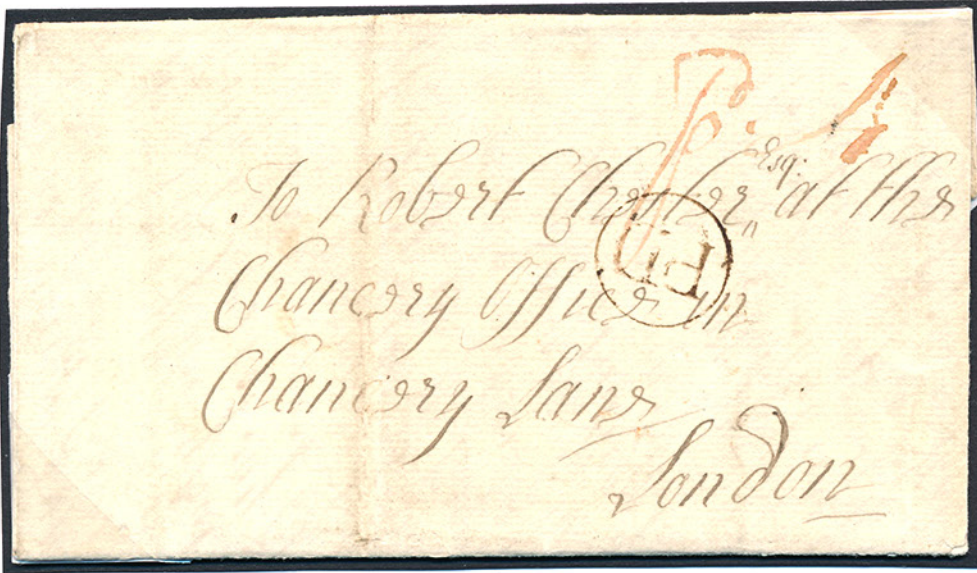 To Robert Chester Esq: at the
Chancery Office in
Chancery Lane
London
PD